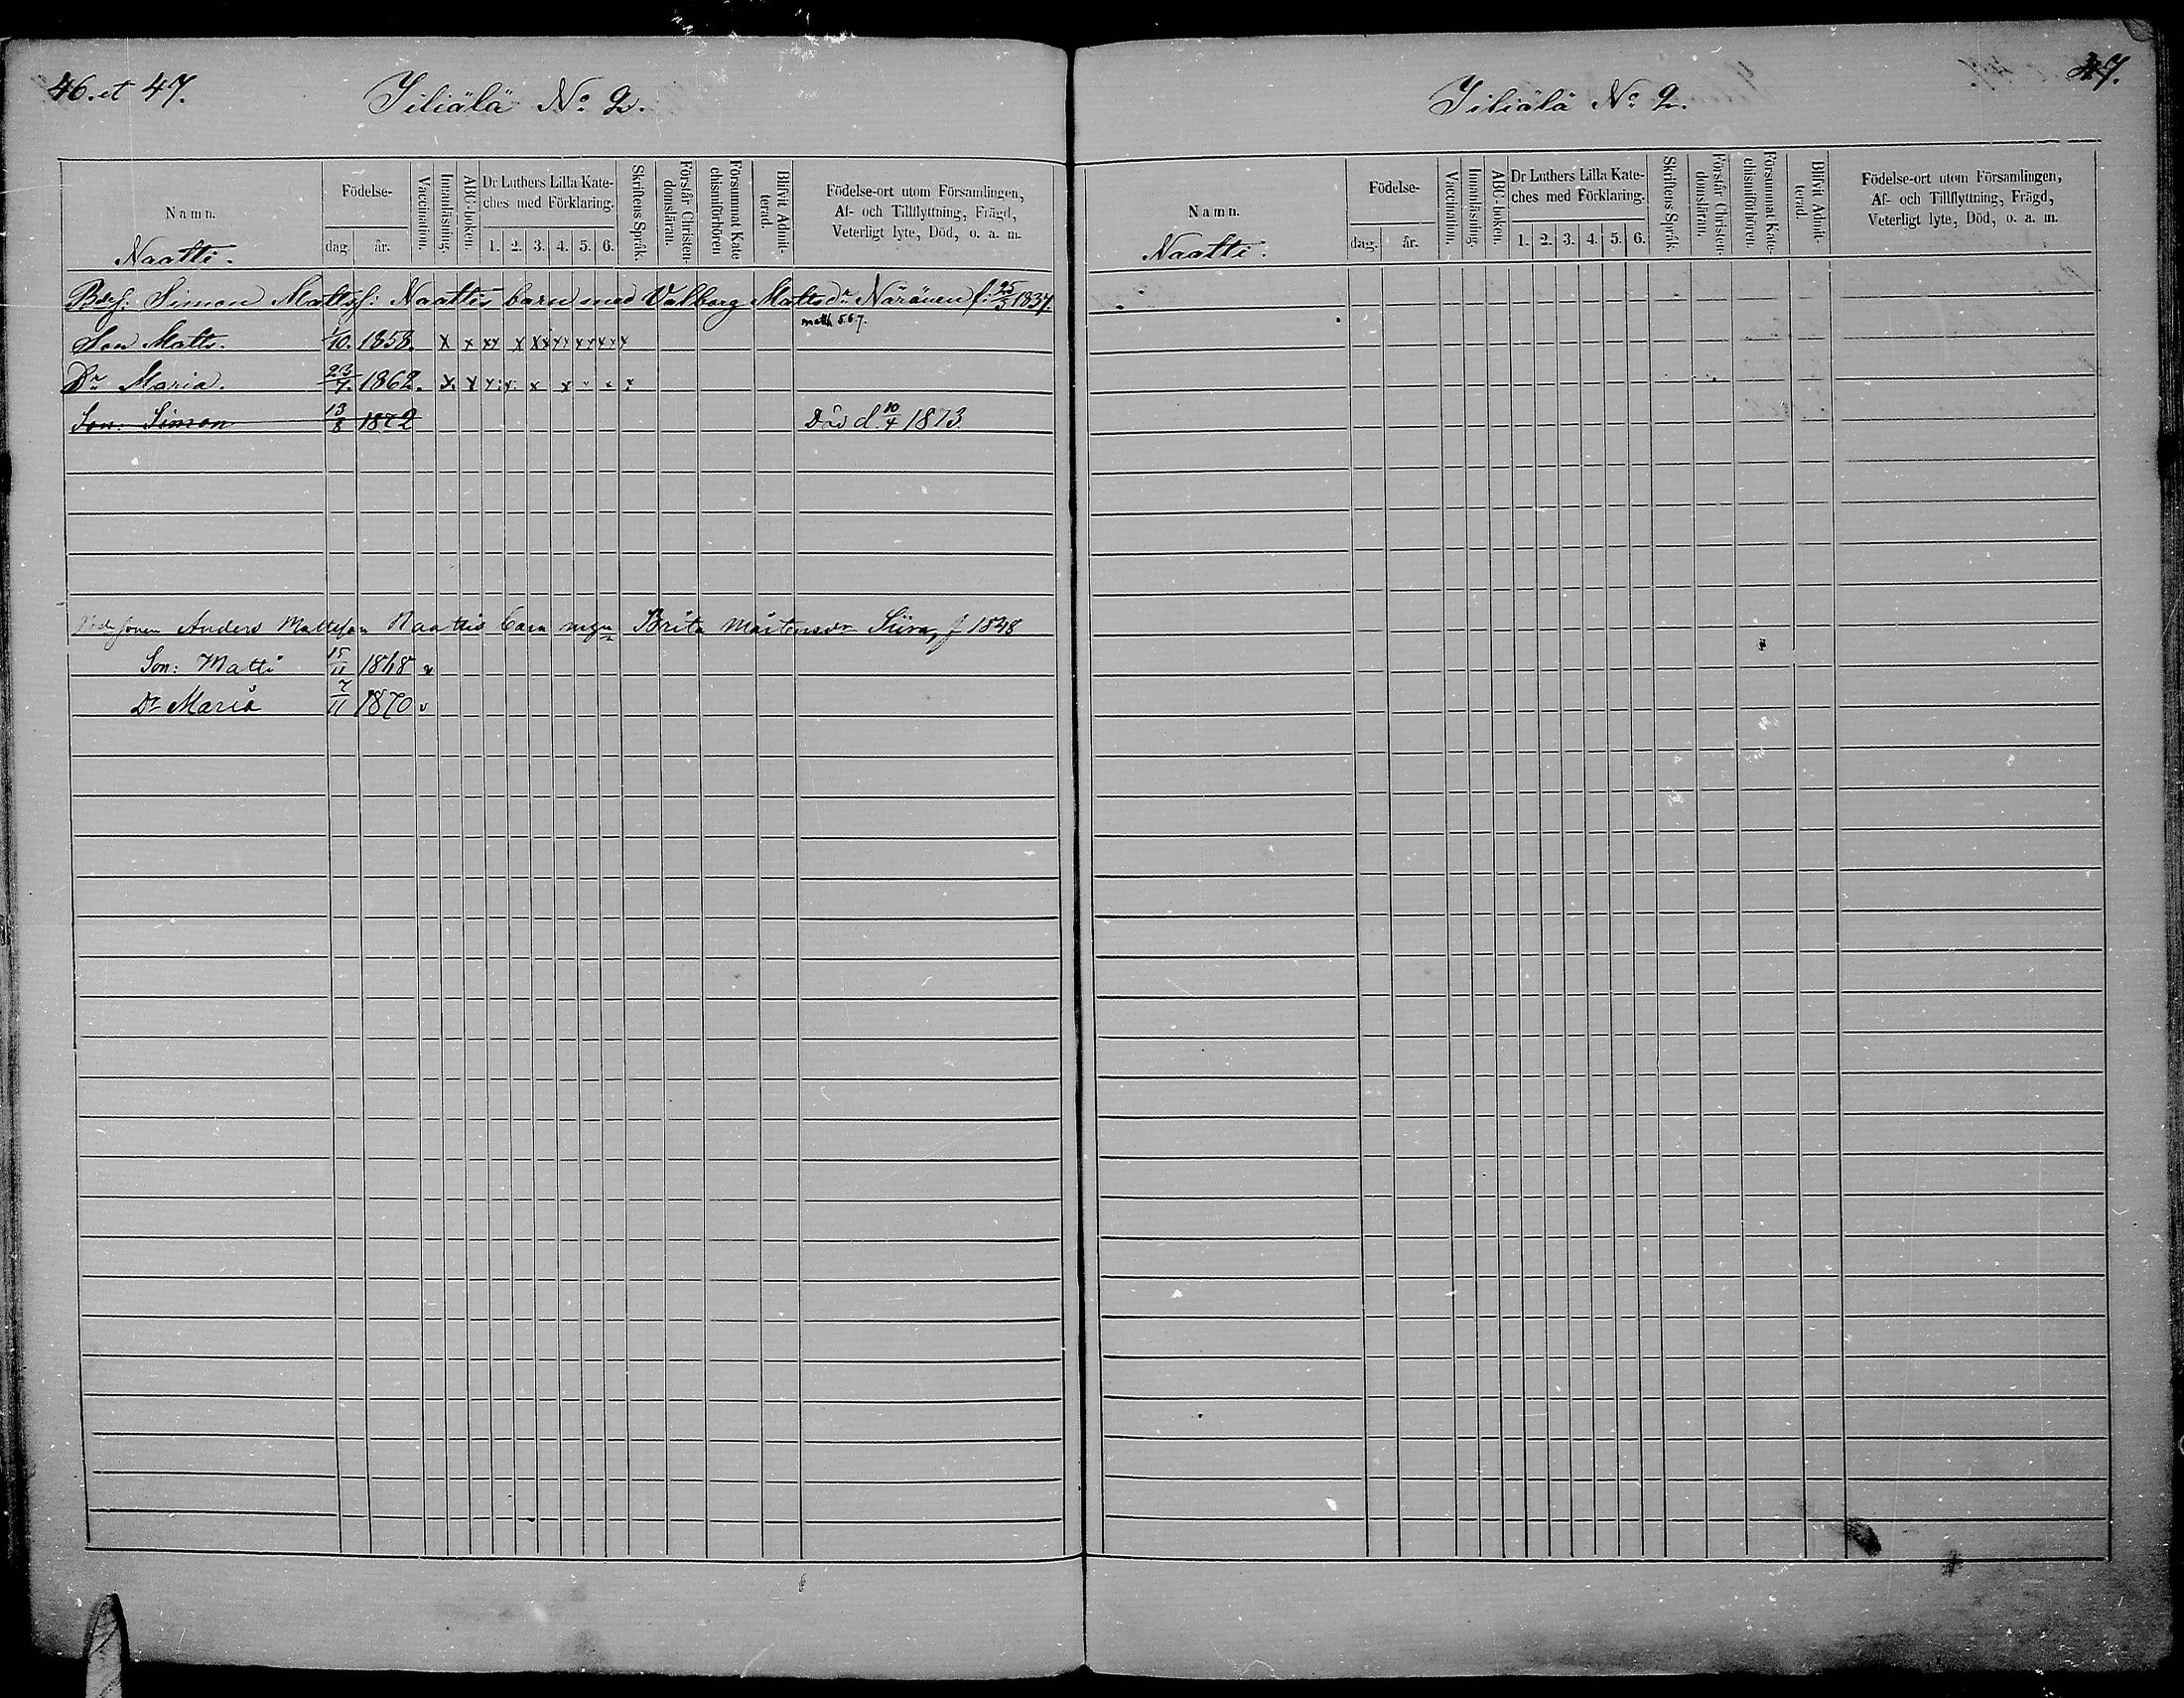 46. et 47.
Yiliälä No 2.
Namn.
Naatti.
Födelse-
dag
år.
Vaccination.
Innanläsning.
ABC-boken.
Dr Luthers Lilla Kate-
ches med Förklaring.
1. 2. 3. 4. 5. 6.
Skriftens Språk.
Förstår Christen-
domsläran.
Försummat Kate
chismiförhören
Blifvit Admit-
terad.
Födelse-ort utom Församlingen,
Af- och Tillflyttning, Frägd,
Veterligt lyte, Död, o. a. m.
Simon Matts: Naattis barn med Valborg Mattsdr Närönen f: 25/5 1837.
Son Matts. 1/10. 1858. x x xx x xx xx xx xx x math 5.6.7.
Dr Maria. 23/7. 1862. x. x x x x x x x x
Son: Simon 13/8 1872 Död d. 10/4 1873
Anders Mattsson Naattis barn Brita Mårtensdr Siira, f 1848
Son: Matti 15/11 1868 v
Dr Maria 7/11 1870 v
47.
Yiliälä No 2.
Namn.
Naatti.
Födelse-
dag.
år.
Vaccination.
Innanläsning.
ABC-boken.
Dr Luthers Lilla Kate-
ches med Förklaring.
1. 2. 3. 4. 5. 6.
Skriftens Språk.
Förstår Christen-
domsläran.
Försummat Kate-
chismiförhören.
Blifvit Admit-
terad.
Födelse-ort utom Församlingen,
Af- och Tillflyttning, Frägd,
Veterligt lyte, Död, o. a. m.